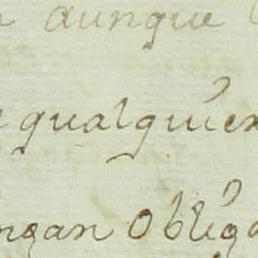 aunque
qualquier
ngan oblig